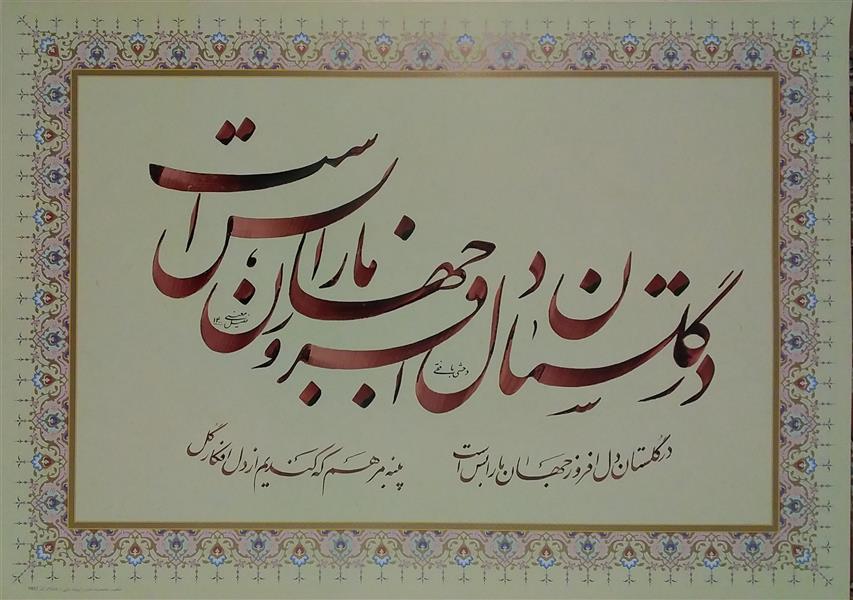 در گلستان دل افروز جهان ما را بس است
وحشی بافقی
در گلستان دل افروز جهان ما را بس است
پنبه مرهم که کندیم از دل افکار گل